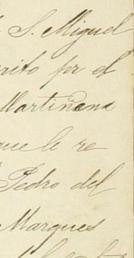 S. Miguel
rito por el
Martinana
que le re
Pedro del
Marques